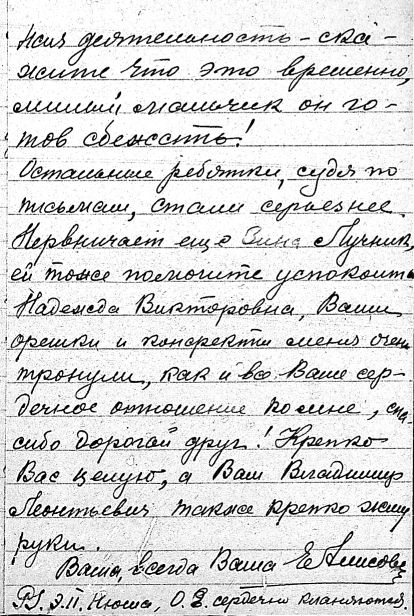 ная деятельность – ска-
жите что это временно,
милый мальчик он го-
тов сбежать!
Остальные ребятки, судя по
письмам, стали серьезнее.
Нервничает еще Зина Лучник,
ей тоже помогите успокоить
Надежда Викторовна, Ваши
орешки и конфекты меня очень
тронули, как и всё Ваше сер-
дечное отношение ко мне, спа-
сибо дорогой друг! Крепко
Вас целую, а Вам Владимир
Леонтьевич также крепко жму
руки.
Ваша, всегда Ваша Е Алисова
PS. Э.П. Нюша, О.Э. сердечно кланяются